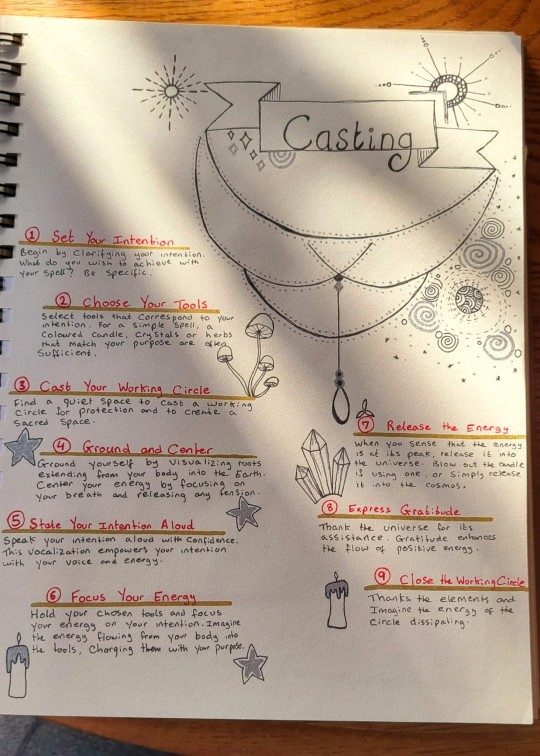 Casting
① Set Your Intention
Begin by Clarifying your intention.
What do you wish to achieve with
your Spell? Be Specific.
② Choose Your Tools
Select tools that Correspond to your
intention. For a Simple Spell, a
Coloured Candle, Crystals or herbs
that match your purpose are often
Sufficient.
③ Cast Your Working Circle
Find a quiet Space to Cast a working
Circle for protection and to Create a
Sacred Space.
④ Ground and Center
Ground yourself by Visualizing roots
extending from your body into the Earth.
Center your energy by focusing on
your breath and releasing any tension.
⑤ State Your Intention Aloud
Speak your intention aloud with Confidence.
This Vocalization empowers your intention
with your voice and energy.
⑥ Focus Your Energy
Hold your chosen tools and focus
your energy on your intention. Imagine
the energy flowing from your body into
the tools, Charging them with your purpose.
⑦ Release the Energy
When you Sense that the energy
is at its peak, release it into
the universe. Blow out the candle
if using one, or Simply release
it into the cosmos.
⑧ Express Gratitude
Thank the universe for its
assistance. Gratitude enhances
the flow of positive energy.
⑨ Close the Working Circle
Thanks the elements and
Imagine the energy of the
Circle dissipating.